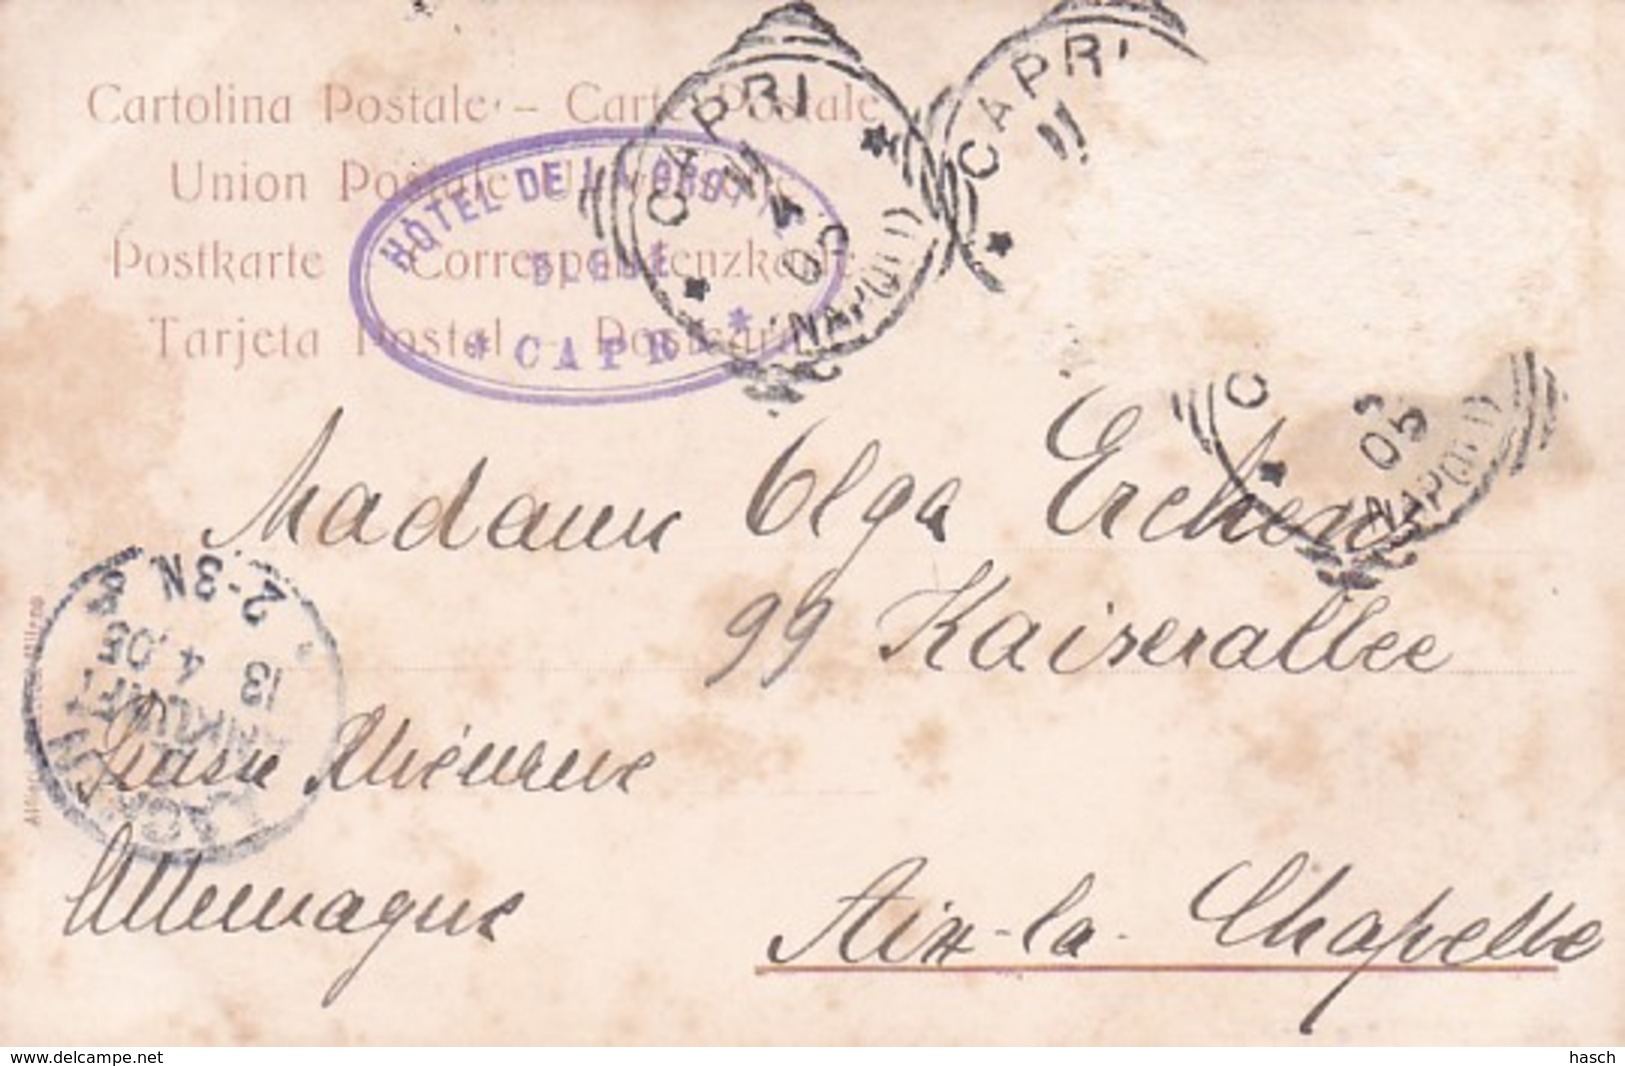 Cartolina Postale - Carte Postale
Union Postale
Postkarte - Correspondenzkarte
Tarjeta Postal - Postcard
HÔTEL DE LA GROTTE
BLEUE
* CAPRI *
CAPRI
* *
11
4
05
(NAPOLI)
CAPRI
11
*
C
*
05
(NAPOLI)
Madame Olga Erckens
99 Kaiserallee
Prusse Rhénane
Allemagne
Aix-la-Chapelle
AACHEN
ANKUNFT
13 4.05
2-3N
Milano
www.delcampe.net
hasch